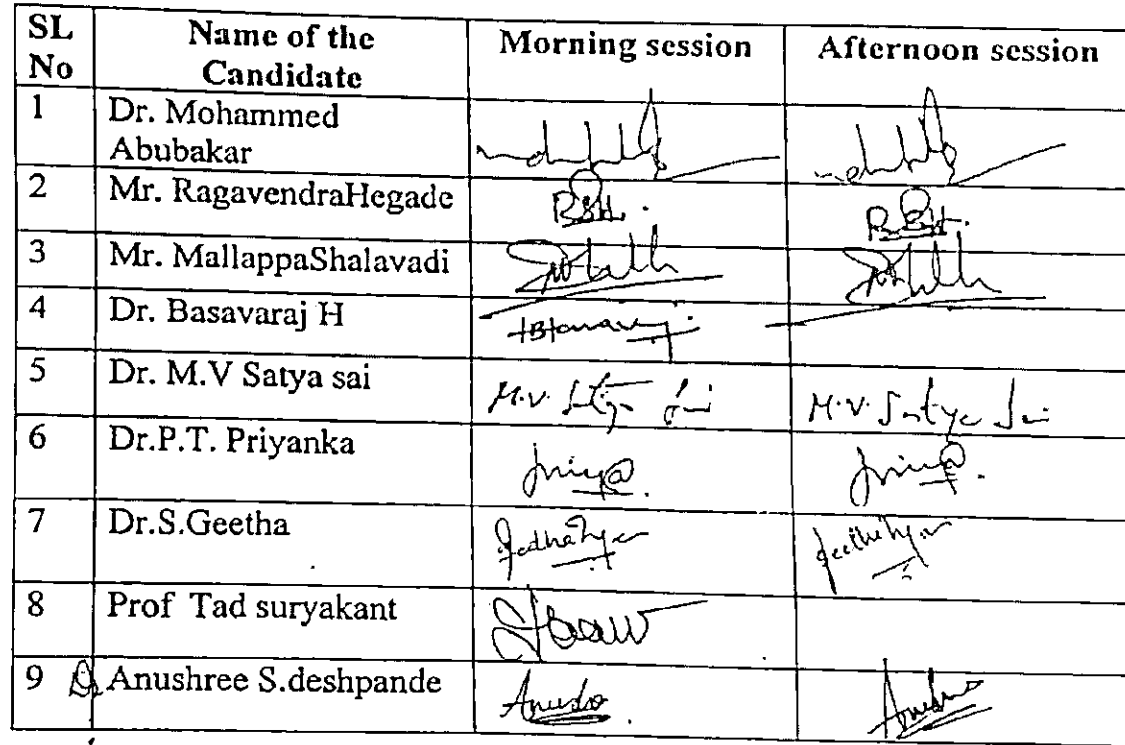 SL No Name of the Candidate Morning session Afternoon session
1 Dr. Mohammed Abubakar
2 Mr. RagavendraHegade RSH. RSH.
3 Mr. MallappaShalavadi
4 Dr. Basavaraj H
5 Dr. M.V Satya sai M.V. Satya Sai M.V. Satya Sai
6 Dr.P.T. Priyanka
7 Dr.S.Geetha
8 Prof Tad suryakant
9 Dr Anushree S.deshpande